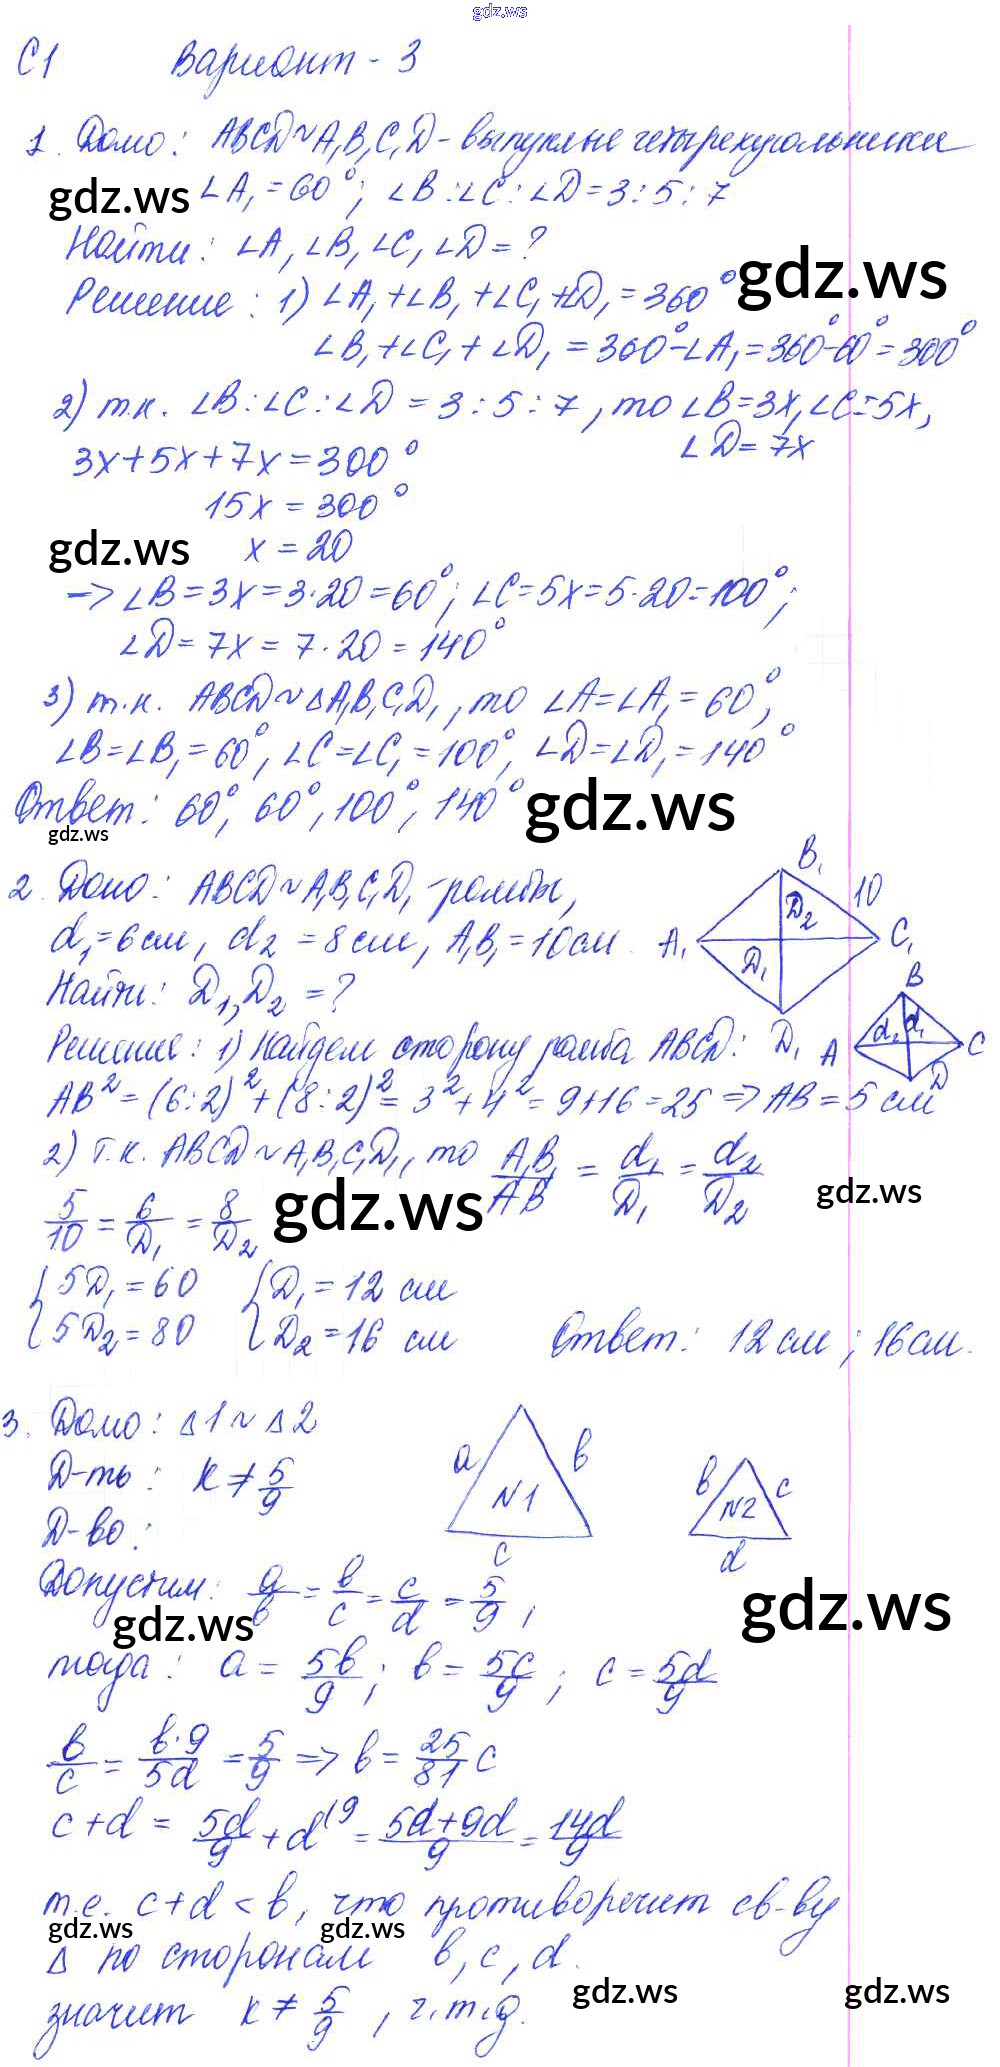 gdz.ws
С1 Вариант - 3
1. Дано: ABCD ~ A₁B₁C₁D - выпуклые четырехугольники
gdz.ws ∠A₁ = 60°; ∠B : ∠C : ∠D = 3 : 5 : 7
Найти: ∠A, ∠B, ∠C, ∠D = ?
gdz.ws
Решение: 1) ∠A₁ + ∠B₁ + ∠C₁ + ∠D₁ = 360°
∠B₁ + ∠C₁ + ∠D₁ = 360° - ∠A₁ = 360° - 60° = 300°
2) т.к. ∠B : ∠C : ∠D = 3 : 5 : 7, то ∠B = 3x, ∠C = 5x,
∠D = 7x
3x + 5x + 7x = 300°
15x = 300°
gdz.ws x = 20
→ ∠B = 3x = 3·20 = 60°; ∠C = 5x = 5·20 = 100°;
∠D = 7x = 7·20 = 140°
3) т.к. ABCD ~ △A₁B₁C₁D₁, то ∠A = ∠A₁ = 60°,
∠B = ∠B₁ = 60°, ∠C = ∠C₁ = 100°, ∠D = ∠D₁ = 140°
Ответ: 60°, 60°, 100°, 140° gdz.ws
gdz.ws
2. Дано: ABCD ~ A₁B₁C₁D₁ - ромбы,
d₁ = 6 см, d₂ = 8 см, A₁B₁ = 10 см.
B₁ 10 D₂ A₁ C₁ D₁ D₁
Найти: D₁, D₂ = ?
B d₂ d₁ A C D
Решение: 1) Найдем сторону ромба ABCD:
AB² = (6:2)² + (8:2)² = 3² + 4² = 9+16 = 25 => AB = 5 см
2) Т.к. ABCD ~ A₁B₁C₁D₁, то A₁B₁/AB = d₁/D₁ = d₂/D₂
gdz.ws
5/10 = 6/D₁ = 8/D₂ gdz.ws
{ 5D₁ = 60 { D₁ = 12 см
{ 5D₂ = 80 { D₂ = 16 см Ответ: 12 см; 16 см.
3. Дано: △1 ~ △2
Д-ть: k ≠ 5/9
Д-во:
a в N1 c
в c N2 d
Допустим: a/в = в/c = c/d = 5/9;
gdz.ws gdz.ws
тогда: a = 5в/9; в = 5c/9; c = 5d/9
в/c = в·9/5d = 5/9 => в = 25/81 c
c + d = 5d/9 + d⁽⁹ = 5d+9d/9 = 14d/9
т.е. c + d < в, что противоречит св-ву
gdz.ws gdz.ws
△ по сторонам в, c, d.
gdz.ws gdz.ws
значит k ≠ 5/9, ч.т.д.